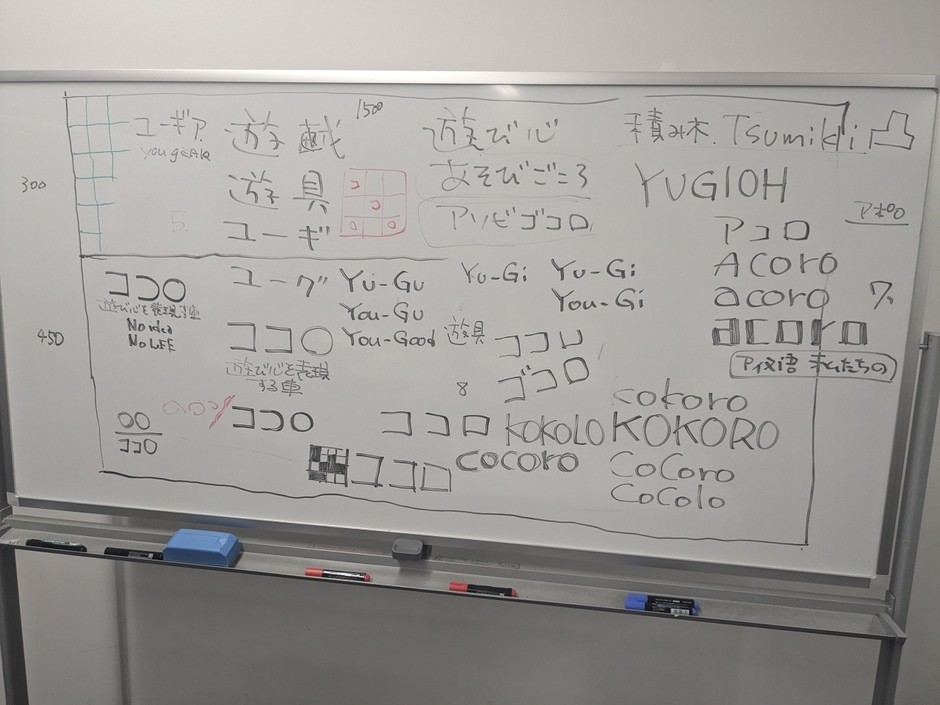 1500
ユーギア
遊戯
遊び心
積み木 Tsumiki
遊具
あそびごころ
YUGIOH
300
ユーギ
アソビゴコロ
アコロ
ココロ
ユーグ
Yu-Gu
Yu-Gi
Yu-Gi
Acoro
遊び心を表現する車
You-Gu
You-Gi
acoro
No idea
No LIFE
450
ココロ
You-Good
遊具
ココロ
acoro
遊び心を表現
する車
ゴコロ
アイヌ語 私たちの
8
kokoro
ココロ
ココロ
KOKOLO
KOKORO
ココロ
ココロ
cocoro
CoCoro
CoColo